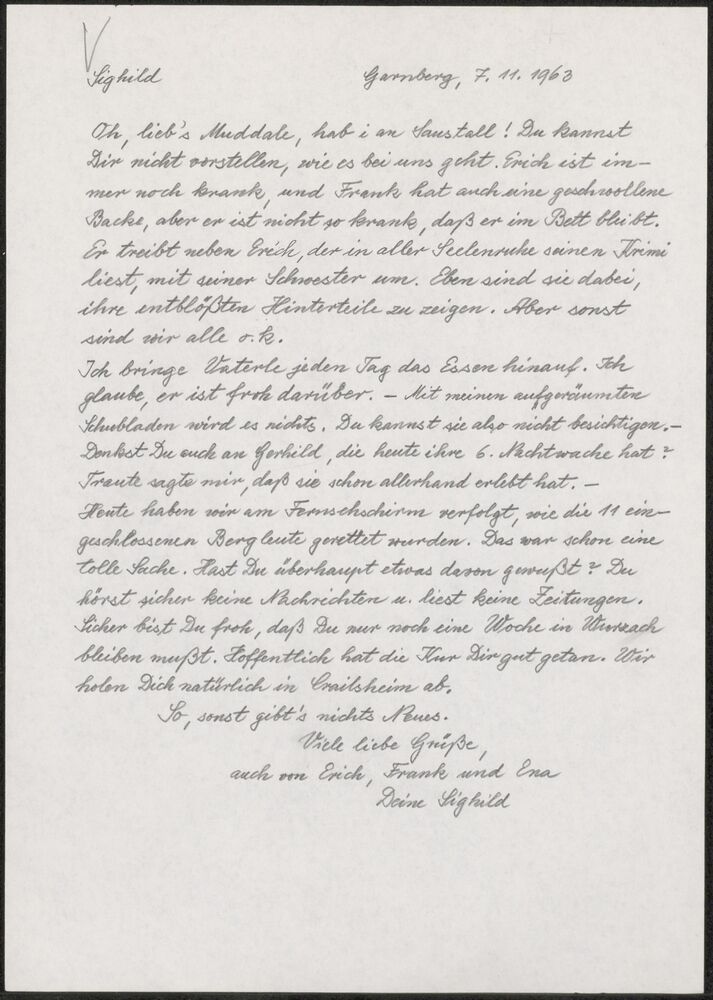 Sighild Garnberg, 7. 11. 1963
Oh, lieb's Muddale, hab i an Saustall! Du kannst
Dir nicht vorstellen, wie es bei uns geht. Erich ist im-
mer noch krank, und Frank hat auch eine geschwollene
Backe, aber er ist nicht so krank, daß er im Bett bleibt.
Er treibt neben Erich, der in aller Seelenruhe seinen Krimi
liest, mit seiner Schwester um. Eben sind sie dabei,
ihre entblößten Hinterteile zu zeigen. Aber sonst
sind wir alle o.k.
Ich bringe Vaterle jeden Tag das Essen hinauf. Ich
glaube, er ist froh darüber. – Mit meinen aufgeräumten
Schubladen wird es nichts. Du kannst sie also nicht besichtigen. –
Denkst Du auch an Gerhild, die heute ihre 6. Nachtwache hat?
Traute sagte mir, daß sie schon allerhand erlebt hat. –
Heute haben wir am Fernsehschirm verfolgt, wie die 11 ein-
geschlossenen Bergleute gerettet wurden. Das war schon eine
tolle Sache. Hast Du überhaupt etwas davon gewußt? Du
hörst sicher keine Nachrichten u. liest keine Zeitungen.
Sicher bist Du froh, daß Du nur noch eine Woche in Wurzach
bleiben mußt. Hoffentlich hat die Kur Dir gut getan. Wir
holen Dich natürlich in Crailsheim ab.
So, sonst gibt's nichts Neues.
Viele liebe Grüße,
auch von Erich, Frank und Ena
Deine Sighild